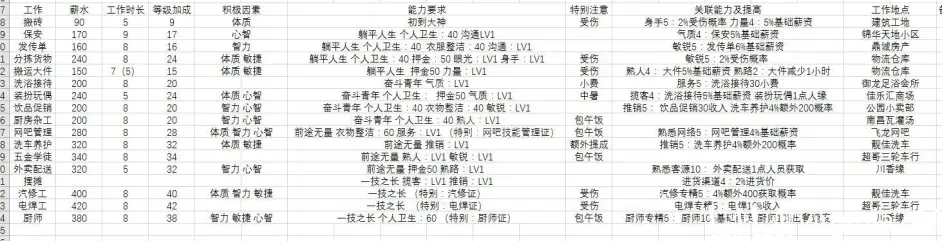 7 工作 薪水 工作时长 等级加成 积极因素 能力要求 特别注意 关联能力及提高 工作地点
8 搬砖 90 5 9 体质 初到大神 受伤 身手5：2%受伤概率 力量4：5%基础薪资 建筑工地
9 保安 170 9 17 心智 躺平人生 个人卫生：40 沟通LV1 气质4：保安5%基础薪资 锦华天地小区
0 发传单 160 8 16 智力 躺平人生 个人卫生：40 衣服整洁：40 沟通：LV1 敏锐5：发传单6%基础薪资 鼎诚房产
1 分拣货物 240 8 24 体质 敏捷 躺平人生 个人卫生：40 押金：50 眼光：LV1 身手：LV1 受伤 敏锐5：2%受伤概率 物流仓库
2 搬运大件 150 7（5） 15 体质 敏捷 躺平人生 押金50 力量：LV1 受伤 熟人4：大件5%基础薪资 熟路2：大件减少1小时 物流仓库
3 洗浴接待 200 8 20 奋斗青年 气质：LV1 小费 服务5：洗浴接待30小费 御龙足浴会所
4 装扮玩偶 240 5 24 体质 心智 奋斗青年 个人卫生：50 押金50 气质：LV1 中暑 揽客4：洗浴接待5%基础薪资 装扮玩偶1点人缘 佳乐汇商场
5 饮品促销 200 8 20 智力 心智 奋斗青年 个人卫生：40 衣物整洁：40 敏锐：LV1 推销5：饮品促销30收入 洗车养护4%额外200概率 公园小卖部
6 厨房杂工 200 8 20 智力 心智 奋斗青年 个人卫生：40 熟人：LV1 包午饭 南昌瓦灌汤
7 网吧管理 280 8 28 体质 智力 心智 前途无量 衣物整洁：60 服务：LV1（特别：网吧技能管理证） 包午饭 熟悉网络5：网吧管理4%基础薪资 飞龙网吧
8 洗车养护 320 8 32 体质 敏捷 前途无量 推销：LV1 额外提成 推销5：洗车养护4%额外200概率 靓佳洗车
9 五金学徒 340 8 34 前途无量 熟人：LV1 敏锐：LV1 包午饭 超哥三轮车行
0 外卖配送 320 5 32 体质 心智 前途无量 押金50 熟路：LV1 熟悉客源10：外卖配送1点人员获取 川香缘
1 摆摊 一技之长 揽客：LV1 推销：LV1 进货渠道4：2%进货价
2 汽修工 400 8 40 体质 智力 敏捷 一技之长 （特别：汽修证） 受伤 汽修专精5：4%额外400获取概率 靓佳洗车
3 电焊工 420 8 42 一技之长 （特别：电焊证） 受伤 电焊专精5：电焊10%收入 超哥三轮车行
4 厨师 380 8 38 智力 敏捷 心智 一技之长 个人卫生：60 （特别：厨师证） 包午饭 厨师专精5：厨师10%基础薪资 川香缘
5